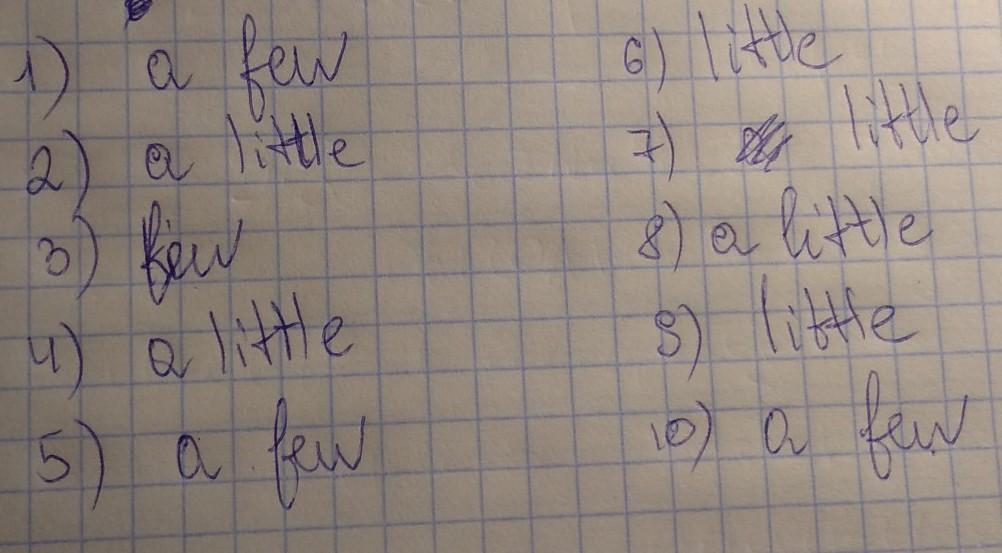 1) a few
2) a little
3) few
4) a little
5) a few
6) little
7) little
8) a little
9) little
10) a few